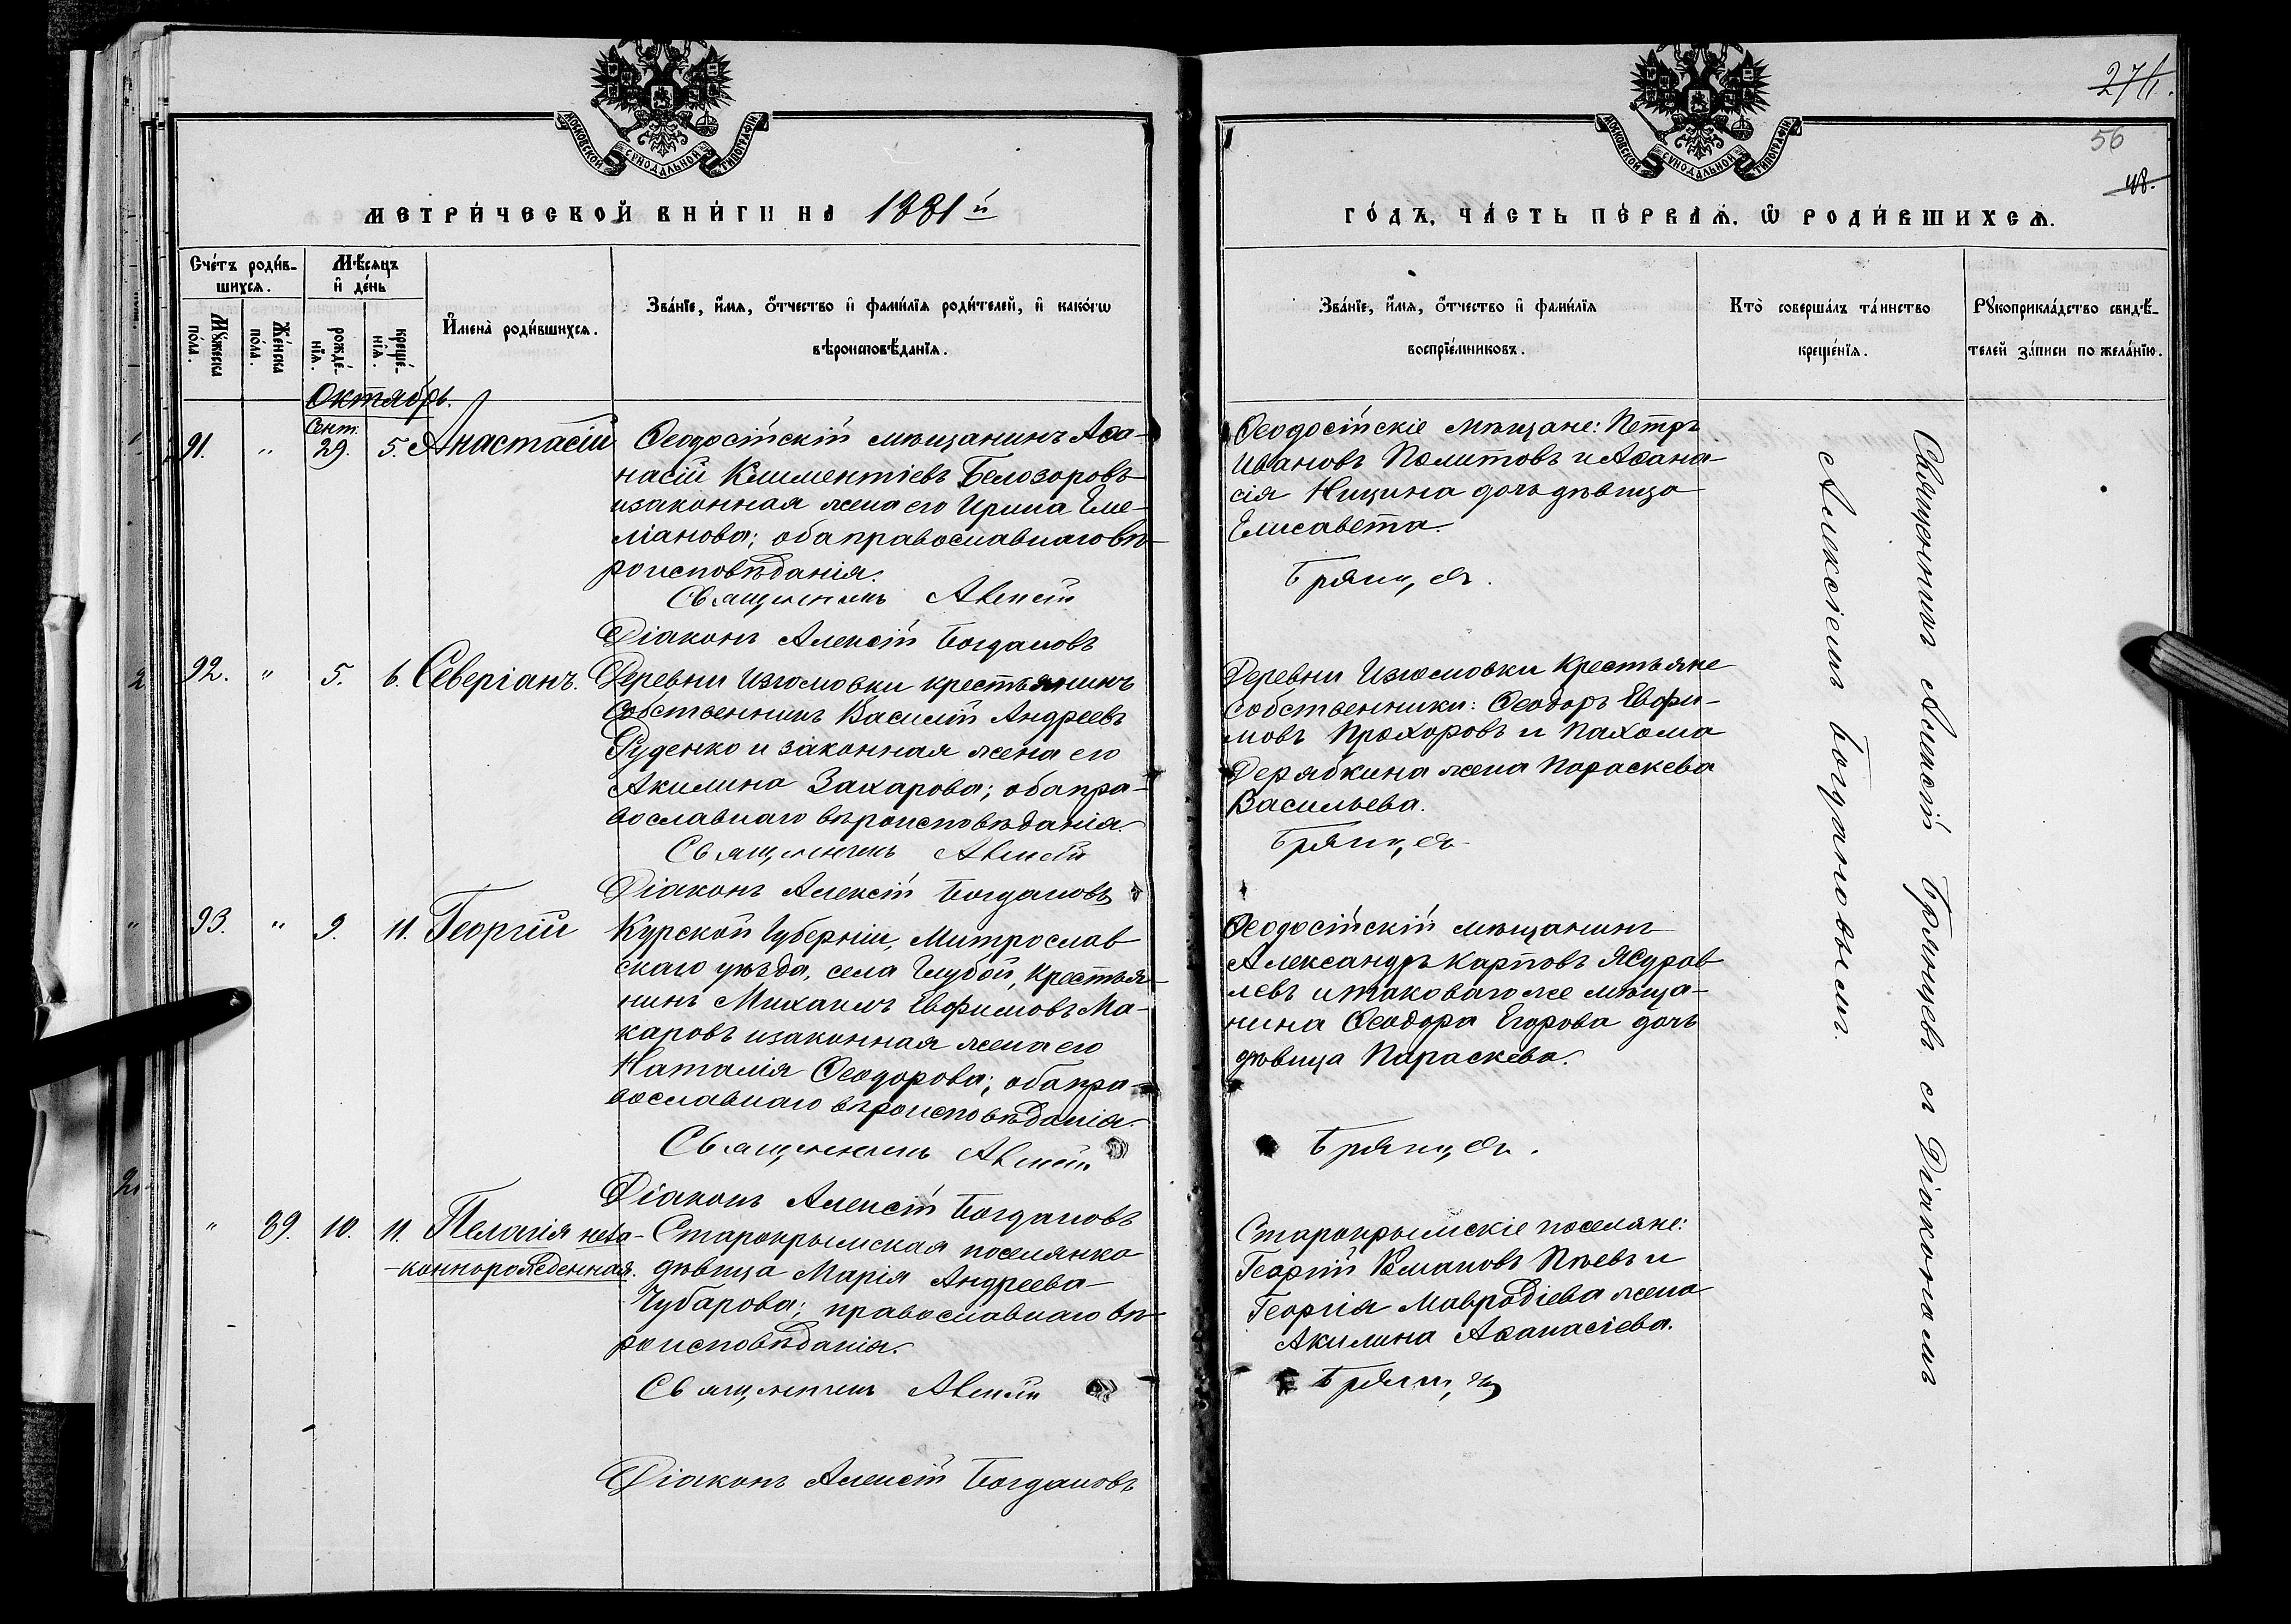 МОСКОВСКОЙ СѴНОДАЛЬНОЙ ТИПОГРАФІИ
МЕТРИ́ЧЕСКОЙ КНИ́ГИ НА 1881й
Сче́тъ роди́в-
шихся.
Мѣ́сяцъ
и҆ де́нь
Мꙋ́жеска
по́ла.
Же́нска
по́ла.
рожде́-
нїя.
креще́-
нїя.
И҆мена̀ роди́вшихся.
Зва́нїе, и҆́мя, о҆́тчество и҆ фами́лїя роди́телей, и҆ како́гѡ
вѣроисповѣ́данїя.
Октябрь.
Сент.
91. " 29. 5. Анастасій Ѳеодосійскій мѣщанинъ Аѳа-
насій Климентіевъ Белозоровъ
и законная жена его Ирина Еме-
ліанова; оба православнаго вѣ-
роисповѣданія.
Священникъ Алексій
Діаконъ Алексій Богдановъ
92. " 5. 6. Северіанъ. Деревни Изюмовки крестьянинъ
Собственникъ Василій Андреевъ
Руденко и законная жена его
Акилина Захарова; оба пра-
вославнаго вѣроисповѣданія.
Священникъ Алексій
Діаконъ Алексій Богдановъ
93. " 9. 11. Георгій Курской Губерніи, Митрослав
скаго уѣзда, села Глубой, крестья-
нинъ Михаилъ Евфимовъ Ма-
каровъ и законная жена его
Наталія Ѳеодорова; оба пра-
вославнаго вѣроисповѣданія.
Священникъ Алексій
Діаконъ Алексій Богдановъ
" 89. 10. 11. Пелагія неза- Старокрымская поселянка
-коннорожденная. дѣвица Марія Андреева
Чубарова; православнаго вѣ-
роисповѣданія.
Священникъ Алексій
Діаконъ Алексій Богдановъ
56
48.
МОСКОВСКОЙ СѴНОДАЛЬНОЙ ТИПОГРАФІИ
ГО́ДЪ, ЧА́СТЬ ПЕ́РВАѦ, Ѿ РОДИ́ВШИХСѦ.
Зва́нїе, и҆́мя, о҆́тчество и҆ фами́лїя
воспрїе́мниковъ.
Кто̀ соверша́лъ та́инство
креще́нїя.
Рꙋкоприкла́дство свидѣ́-
телей за́писи по жела́нїю.
Ѳеодосійскіе мѣщане: Петръ
Ивановъ Политовъ и Аѳана-
сія Ницина дочь дѣвица
Елисавета.
Брянцевъ.
Деревни Изюмовки крестьяне
собственники: Ѳеодоръ Евфи-
мовъ Прохоровъ и Пахома
Дерябкина жена Параскева
Васильева.
Брянцевъ
Ѳеодосійскій мѣщанинъ
Александръ Карповъ Журав
левъ и таковаго же мѣща-
нина Ѳеодора Егорова дочь
дѣвица Параскева.
Брянцевъ.
Старокрымскіе поселяне:
Георгій Романовъ Пѣевъ и
Георгія Мавродіева жена
Акилина Аѳанасіева.
Брянцевъ
Священникъ Алексій Брянцевъ съ Діакономъ
Алексіемъ Богдановымъ.